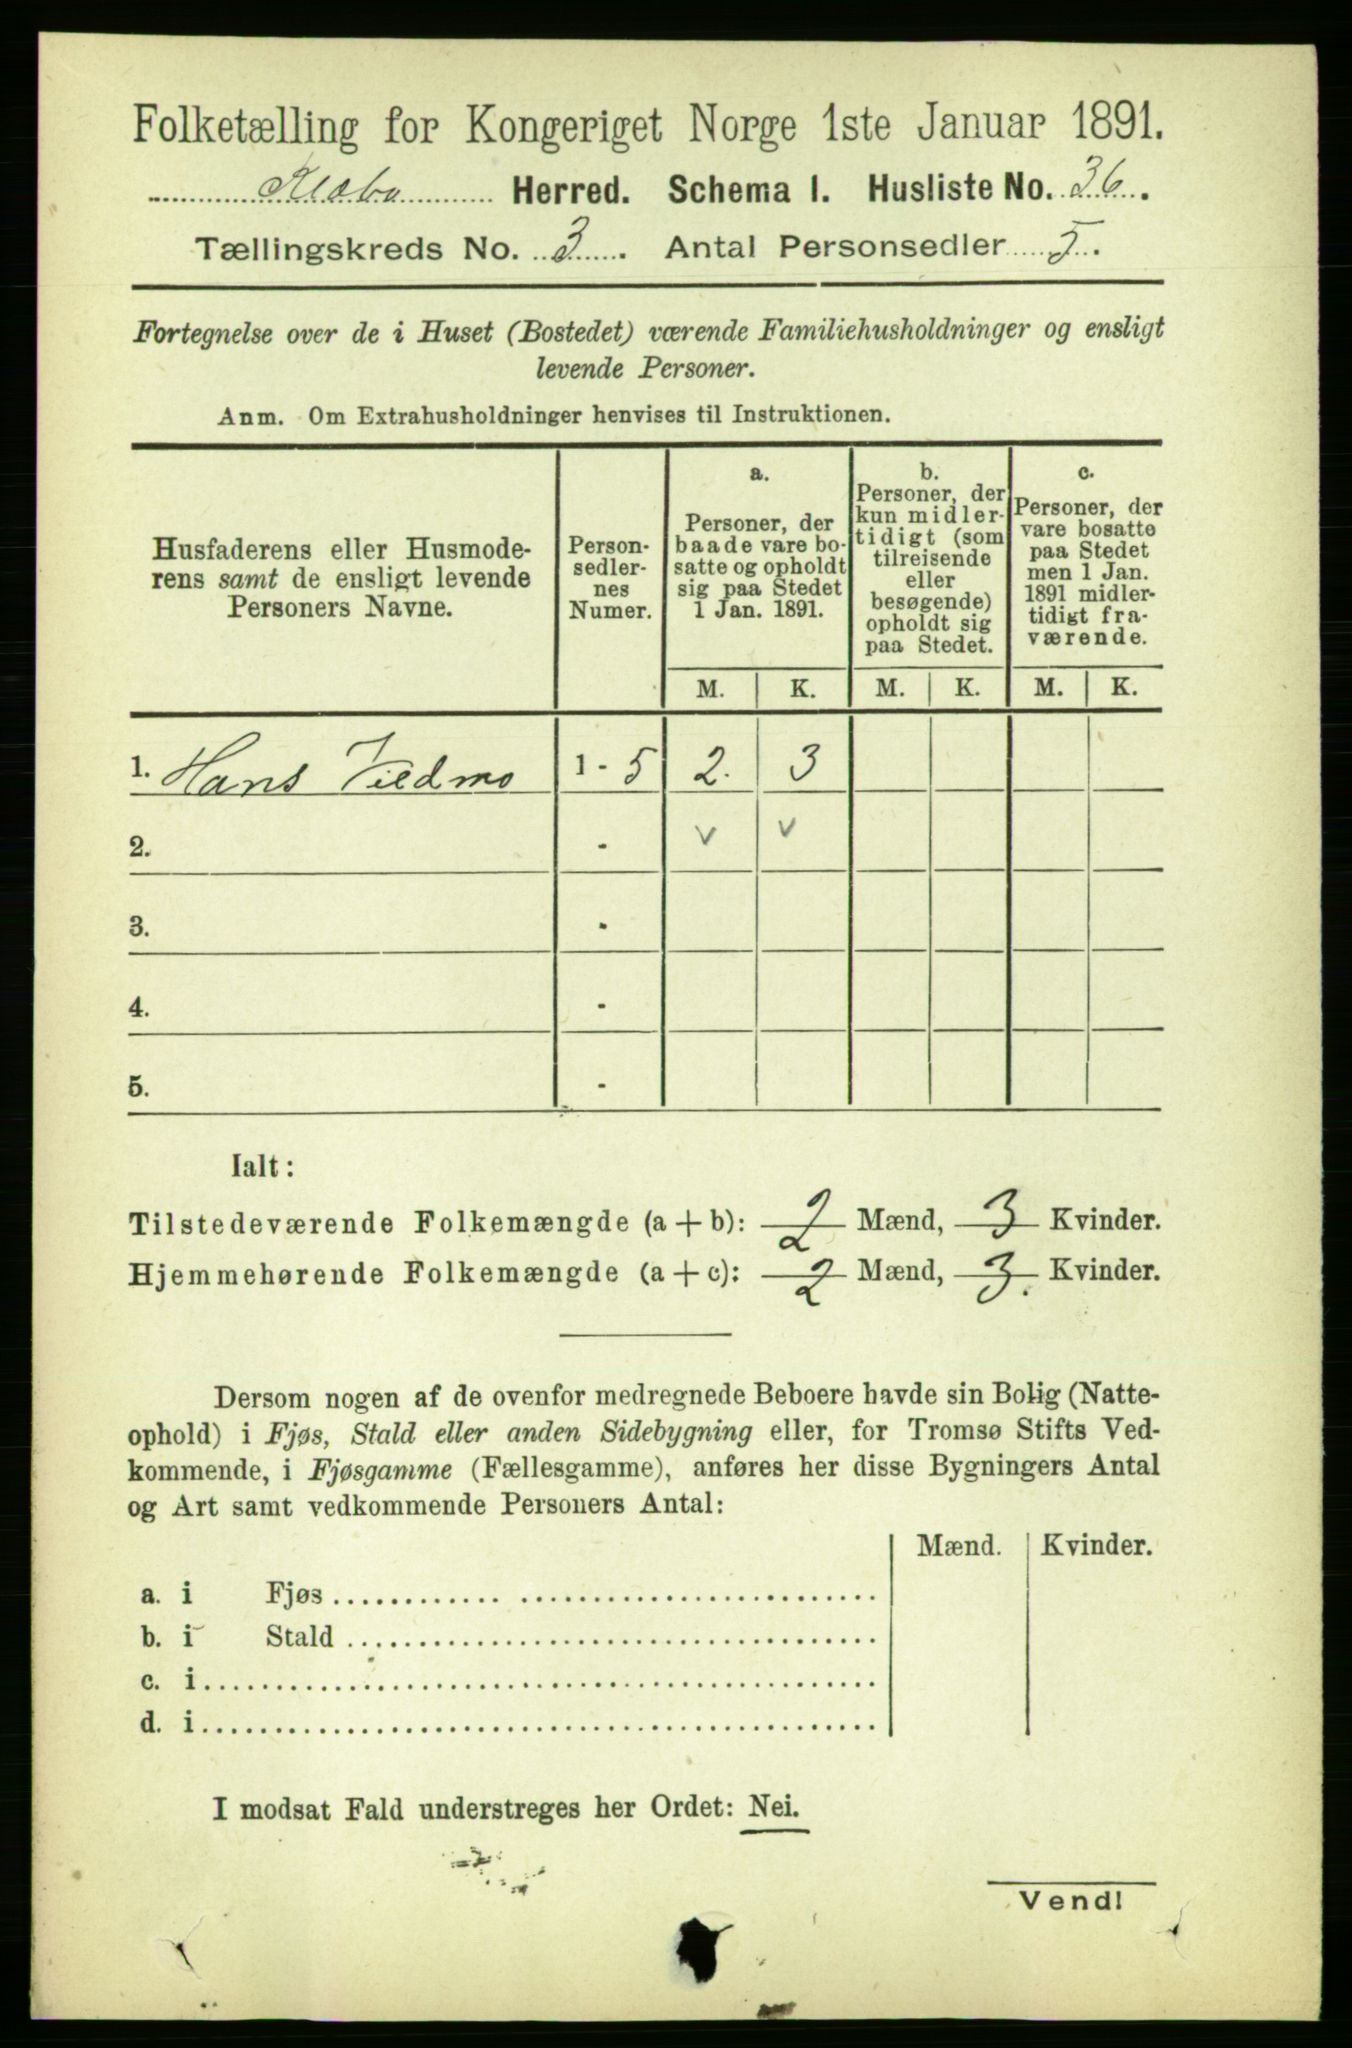 Folketælling for Kongeriget Norge 1ste Januar 1891.
Klæbo Herred. Schema I. Husliste No. 36.
Tællingskreds No. 3. Antal Personsedler 5.
Fortegnelse over de i Huset (Bostedet) værende Familiehusholdninger og ensligt
levende Personer.
Anm. Om Extrahusholdninger henvises til Instruktionen.
Husfaderens eller Husmode-
rens samt de ensligt levende
Personers Navne.
Person-
sedler-
nes
Numer.
a.
Personer, der
baade vare bo-
satte og opholdt
sig paa Stedet
1 Jan. 1891.
b.
Personer, der
kun midler-
tidigt (som
tilreisende
eller
besøgende)
opholdt sig
paa Stedet.
c.
Personer, der
vare bosatte
paa Stedet
men 1 Jan.
1891 midler-
tidigt fra-
værende.
M. K. M. K. M. K.
1. Hans Vildmo 1 - 5 2. 3
2. - v v
3. -
4. -
5. -
Ialt:
Tilstedeværende Folkemængde (a + b): 2 Mænd, 3 Kvinder.
Hjemmehørende Folkemængde (a + c): 2 Mænd, 3. Kvinder.
Dersom nogen af de ovenfor medregnede Beboere havde sin Bolig (Natte-
ophold) i Fjøs, Stald eller anden Sidebygning eller, for Tromsø Stifts Ved-
kommende, i Fjøsgamme (Fællesgamme), anføres her disse Bygningers Antal
og Art samt vedkommende Personers Antal:
Mænd. Kvinder.
a. i Fjøs
b. i Stald
c. i
d. i
I modsat Fald understreges her Ordet: Nei.
Vend!